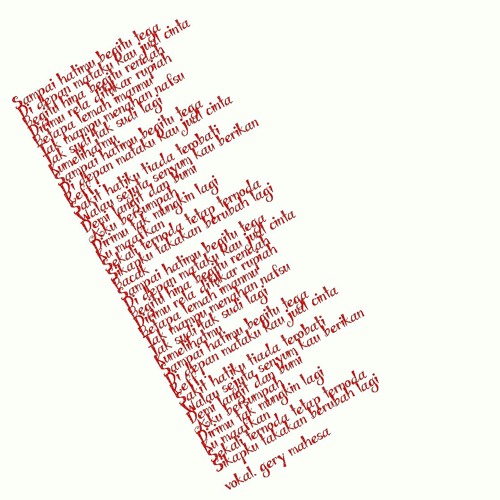 Sampai hatimu begitu tega
Di depan mataku kau judi cinta
Begitu hina begitu rendah
Dirimu rela ditukar rupiah
Betapa lemah imanmu
Tak mampu menahan nafsu
Tak sudi tak sudi lagi
Kumelihatmu
Sampai hatimu begitu tega
Di depan mataku kau judi cinta
Sakit hatiku tiada terobati
Walau sejuta senyum kau berikan
Demi langit dan bumi
Aku bersumpah
Dirimu tak mungkin lagi
Ku maafkan
Sekali ternoda tetap ternoda
Sikapku takakan berubah lagi
Sampai hatimu begitu tega
Di depan mataku kau judi cinta
Begitu hina begitu rendah
Dirimu rela ditukar rupiah
Betapa lemah imanmu
Tak mampu menahan nafsu
Tak sudi tak sudi lagi
Kumelihatmu
Sampai hatimu begitu tega
Di depan mataku kau judi cinta
Sakit hatiku tiada terobati
Walau sejuta senyum kau berikan
Demi langit dan bumi
Aku bersumpah
Dirimu tak mungkin lagi
Ku maafkan
Sekali ternoda tetap ternoda
Sikapku takakan berubah lagi
vokal. gery mahesa